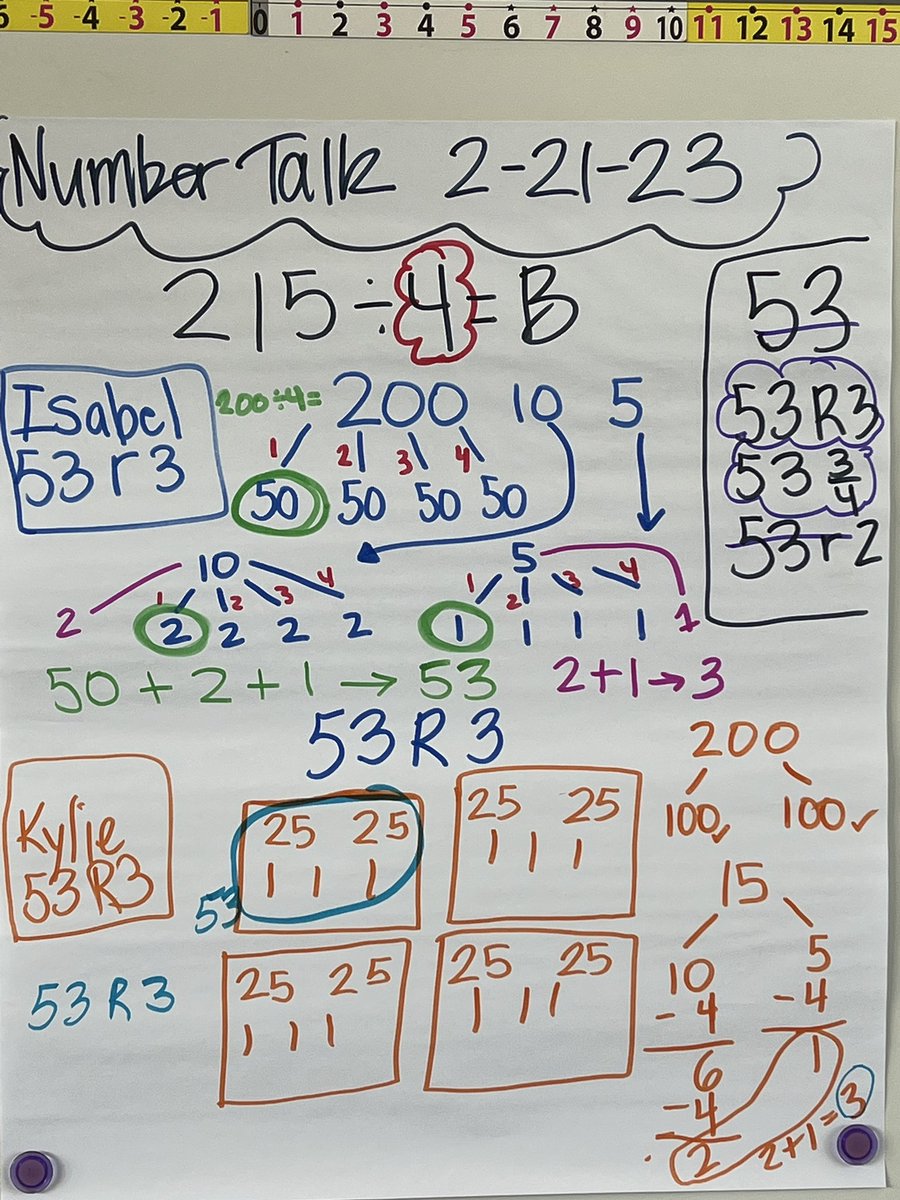 -5 -4 -3 -2 -1 0 1 2 3 4 5 6 7 8 9 10 11 12 13 14 15
Number Talk 2-21-23
215 ÷ 4 = B
53
53 R3
53 3/4
53 r 2
Isabel
53 r 3
200÷4= 200 10 5
1 2 3 4
50 50 50 50
10
1 2 3 4
2 2 2 2 2
5
1 2 3 4
1 1 1 1 1
50 + 2 + 1 → 53
2+1→3
53 R 3
Kylie
53 R3
53 R 3
25 25
1 1 1
53
25 25
1 1 1
25 25
1 1 1
25 25
1 1 1
200
100✓ 100✓
15
10 5
-4 -4
6 1
-4
2
2+1=3